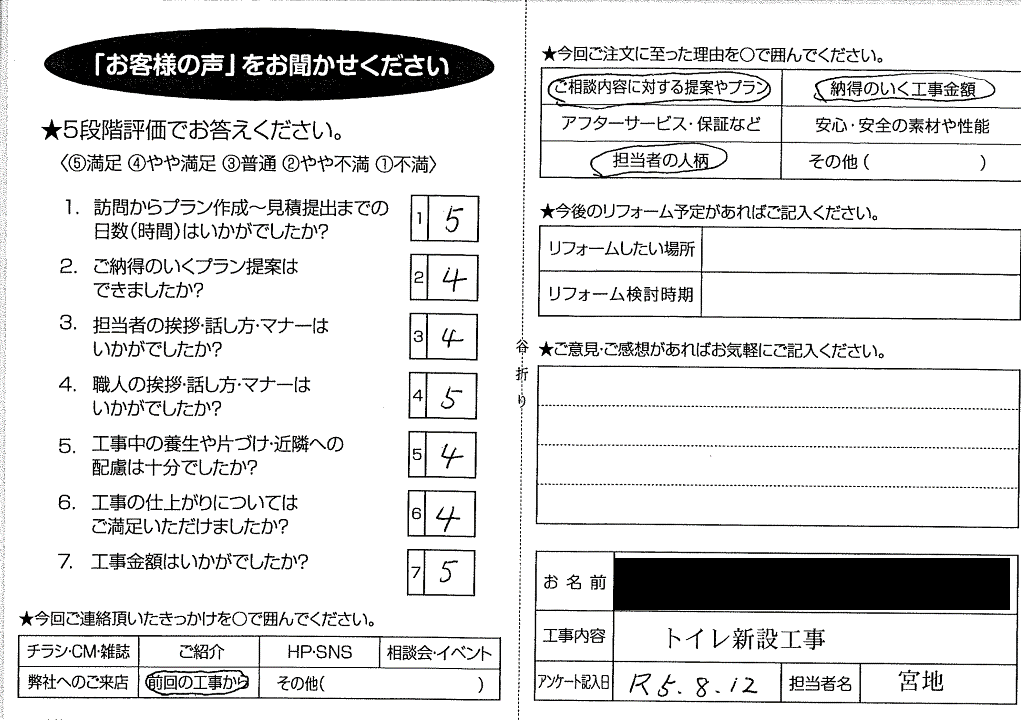 「お客様の声」をお聞かせください
★5段階評価でお答えください。
〈⑤満足 ④やや満足 ③普通 ②やや不満 ①不満〉
1. 訪問からプラン作成〜見積提出までの
日数(時間)はいかがでしたか?
1 5
2. ご納得のいくプラン提案は
できましたか?
2 4
3. 担当者の挨拶・話し方・マナーは
いかがでしたか?
3 4
4. 職人の挨拶・話し方・マナーは
いかがでしたか?
4 5
5. 工事中の養生や片づけ・近隣への
配慮は十分でしたか?
5 4
6. 工事の仕上がりについては
ご満足いただけましたか?
6 4
7. 工事金額はいかがでしたか?
7 5
★今回ご連絡頂いたきっかけを〇で囲んでください。
チラシ・CM・雑誌 ご紹介 HP・SNS 相談会・イベント
弊社へのご来店 前回の工事から その他( )
谷折り
★今回ご注文に至った理由を〇で囲んでください。
ご相談内容に対する提案やプラン 納得のいく工事金額
アフターサービス・保証など 安心・安全の素材や性能
担当者の人柄 その他( )
★今後のリフォーム予定があればご記入ください。
リフォームしたい場所
リフォーム検討時期
★ご意見・ご感想があればお気軽にご記入ください。
お名前
工事内容 トイレ新設工事
アンケート記入日 R5.8.12 担当者名 宮地